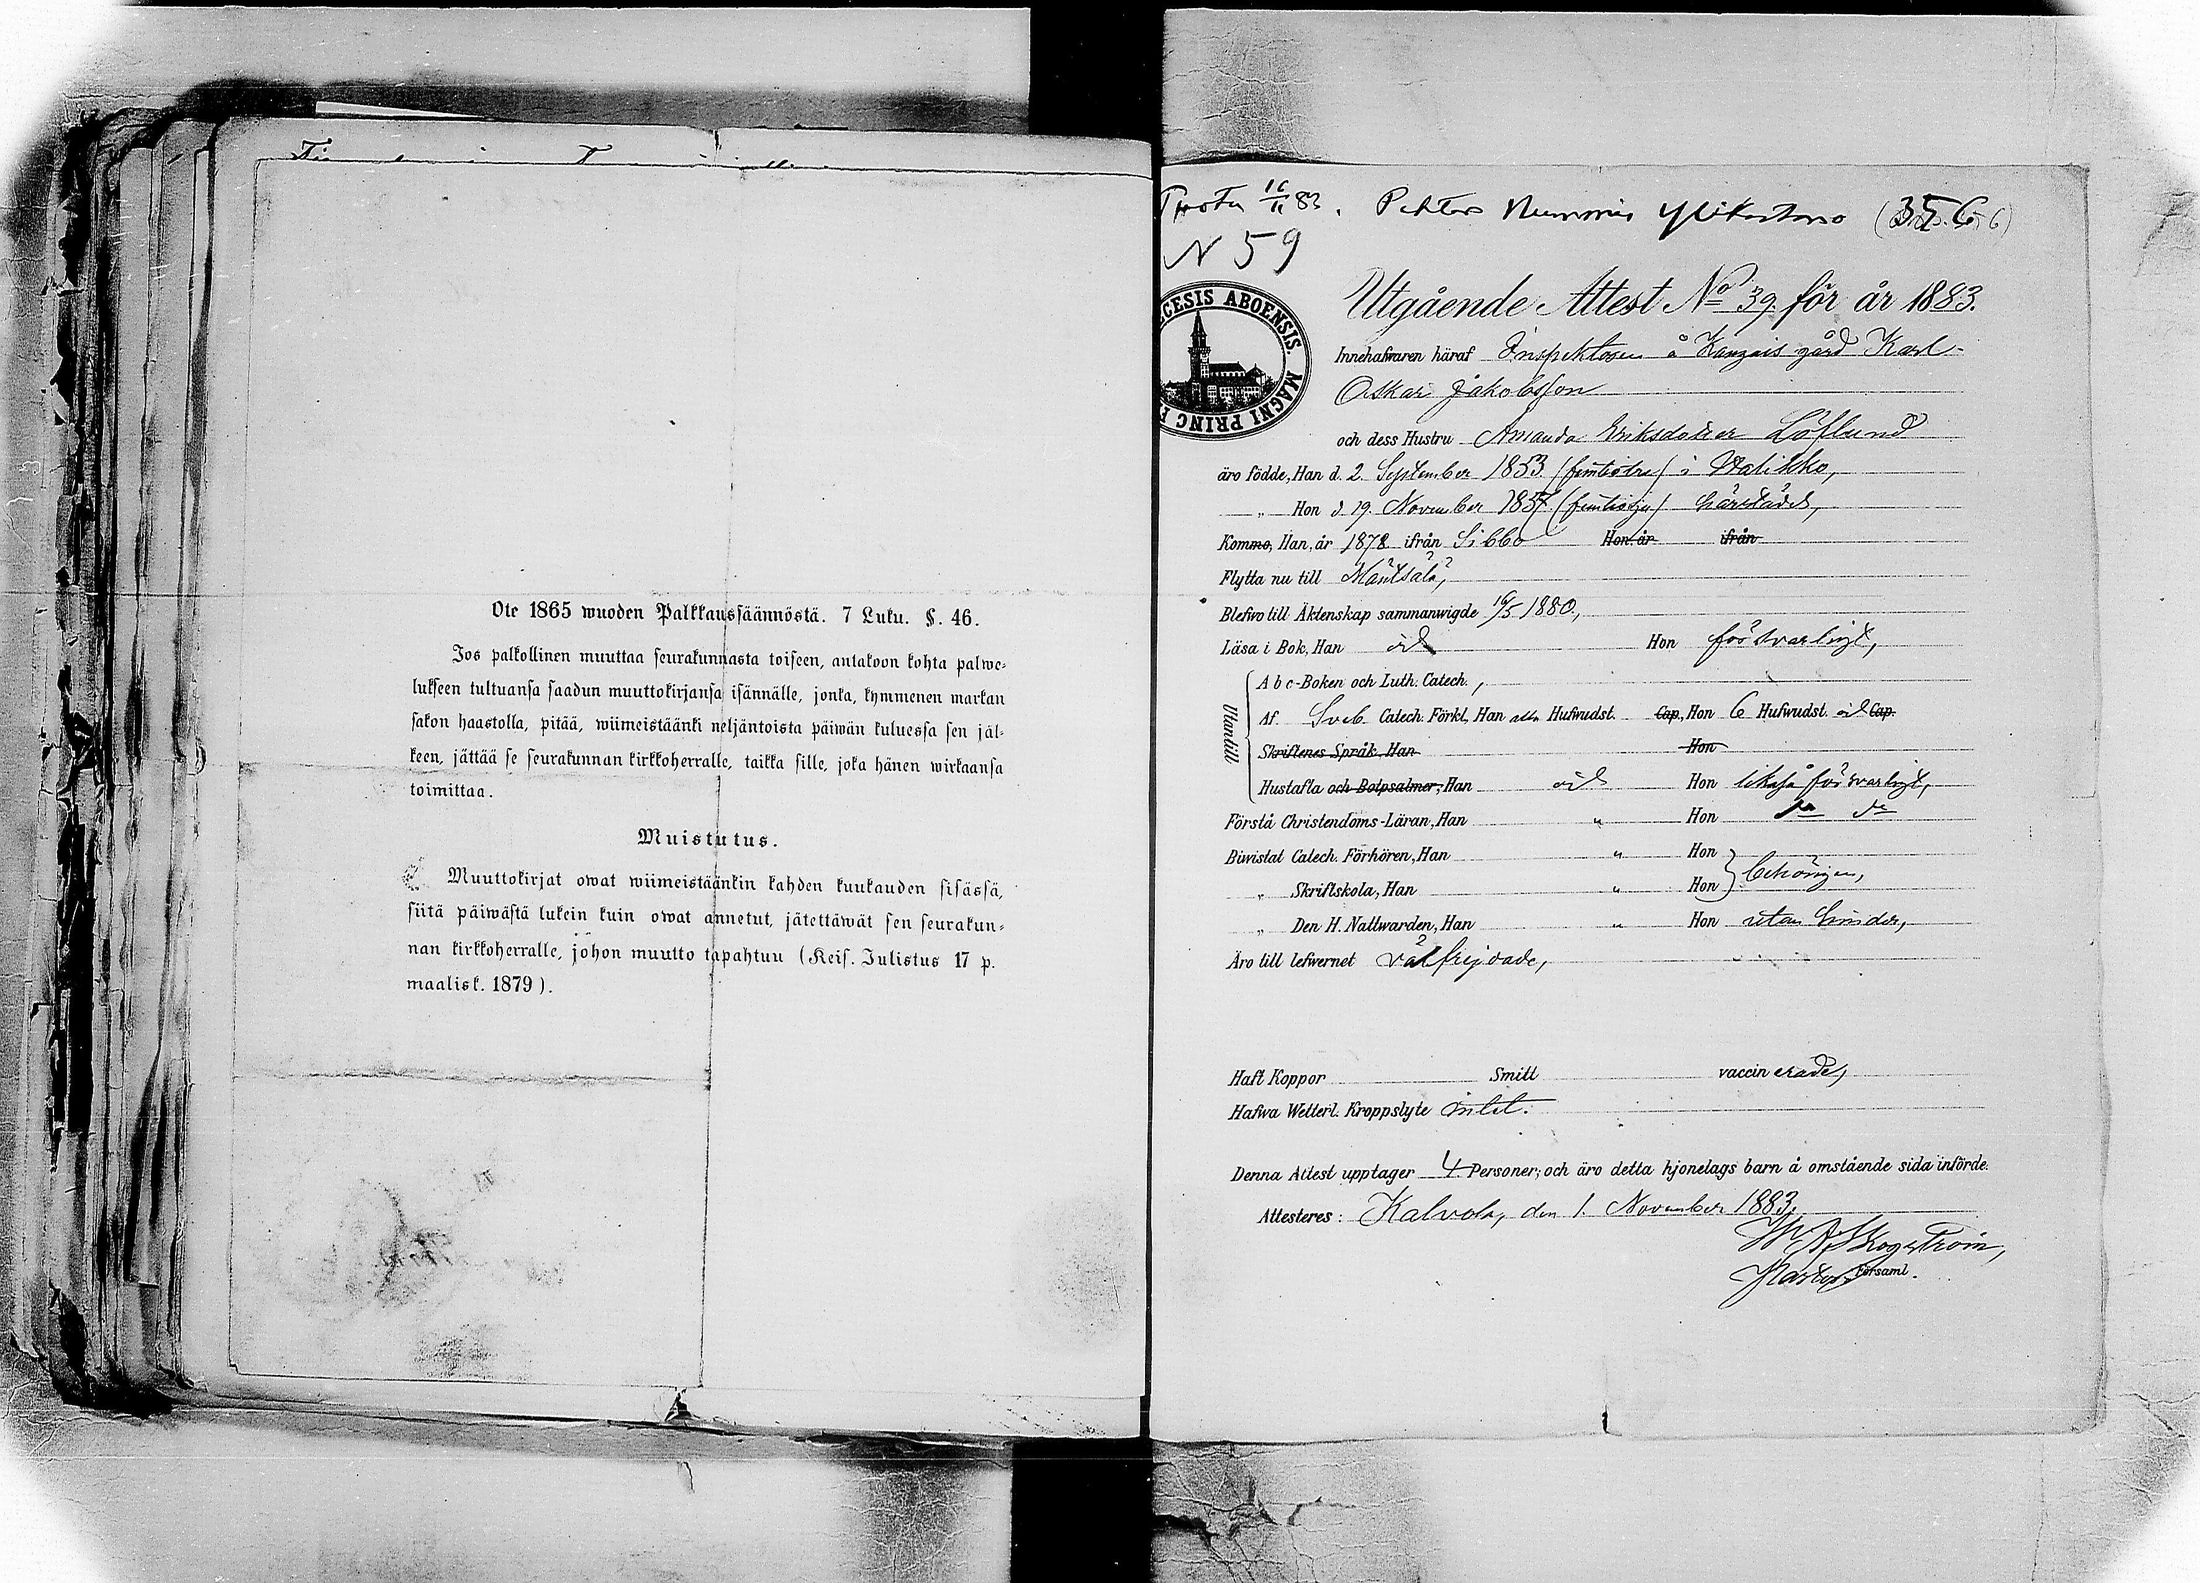 Ote 1865 wuoden Palkkaussäännöstä. 7 Luku. §. 46.
Jos palkollinen muuttaa seurakunnasta toiseen, antakoon kohta palwe-
lukseen tultuansa saadun muuttokirjansa isännälle, jonka, kymmenen markan
sakon haastolla, pitää, wiimeistäänki neljäntoista päiwän kuluessa sen jäl-
keen, jättää se seurakunnan kirkkoherralle, taikka sille, joka hänen wirkaansa
toimittaa.
Muistutus.
Muuttokirjat owat wiimeistäänkin kahden kuukauden sisässä,
siitä päiwästä lukein kuin owat annetut, jätettäwät sen seurakun-
nan kirkkoherralle, johon muutto tapahtuu (Keis. Julistus 17 p.
maalisk. 1879).
16/11 83. Nummis (356)
N 59
CESIS ABOENSIS. MAGNI PRINC F
Utgående Attest No 39 för år 1883.
Innehafwaren häraf Inspektoren å Kanzais gård Karl
Oskar Jakobsson
och dess Hustru Amanda Eriksdotter Löflund
äro födde, Han d. 2. September 1853 (femtiotre) i
" Hon d 19. November 1857. (femtiosju) härstädes,
Kommo, Han, år 1878 ifrån Sibbo Hon år ifrån
Flytta nu till Mäntsälä,
Blefwo till Äktenskap sammanwigde 16/5 1880.,
Läsa i Bok, Han Hon försvarligt,
Utantill
Abc-Boken och Luth. Catech.,
Af Sveb. Catech. Förkl, Han Hufwudst. Cap, Hon 6 Hufwudst. Cap.
Skriftenes Språk, Han Hon
Hustafla och Botpsalmer, Han Hon likaså försvarligt,
Förstå Christendoms-Läran, Han " Hon do do
Biwistat Catech. Förhören, Han " Hon
" Skriftskola, Han " Hon behörigen,
" Den H. Nattwarden, Han " Hon utan hinder,
Äro till lefwernet välfrejdade,
Haft Koppor Smitt vaccinerade,
Hafwa Wetterl. Kroppslyte intet.
Denna Attest upptager 4 Personer; och äro detta hjonelags barn å omstående sida införde.
Attesteres: Kalvola, den 1. November 1883.
Skogström,
Pastor Församl.